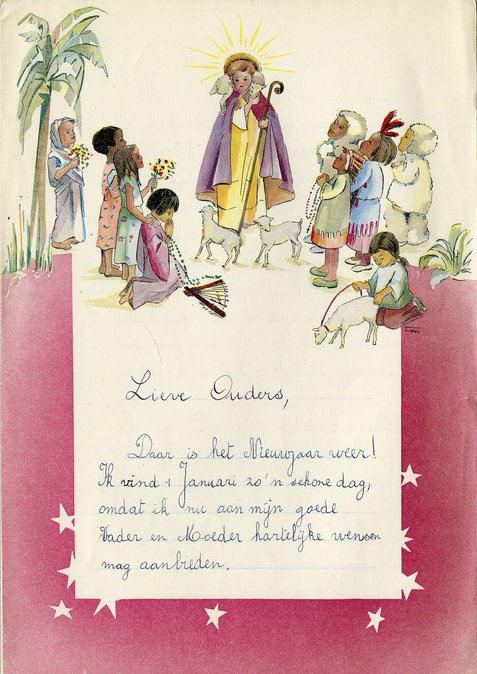 Lieve Ouders,
Daar is het Nieuwjaar weer!
Ik vind 1 Januari zo'n schone dag,
omdat ik nu aan mijn goede
Vader en Moeder hartelijke wensen
mag aanbieden.